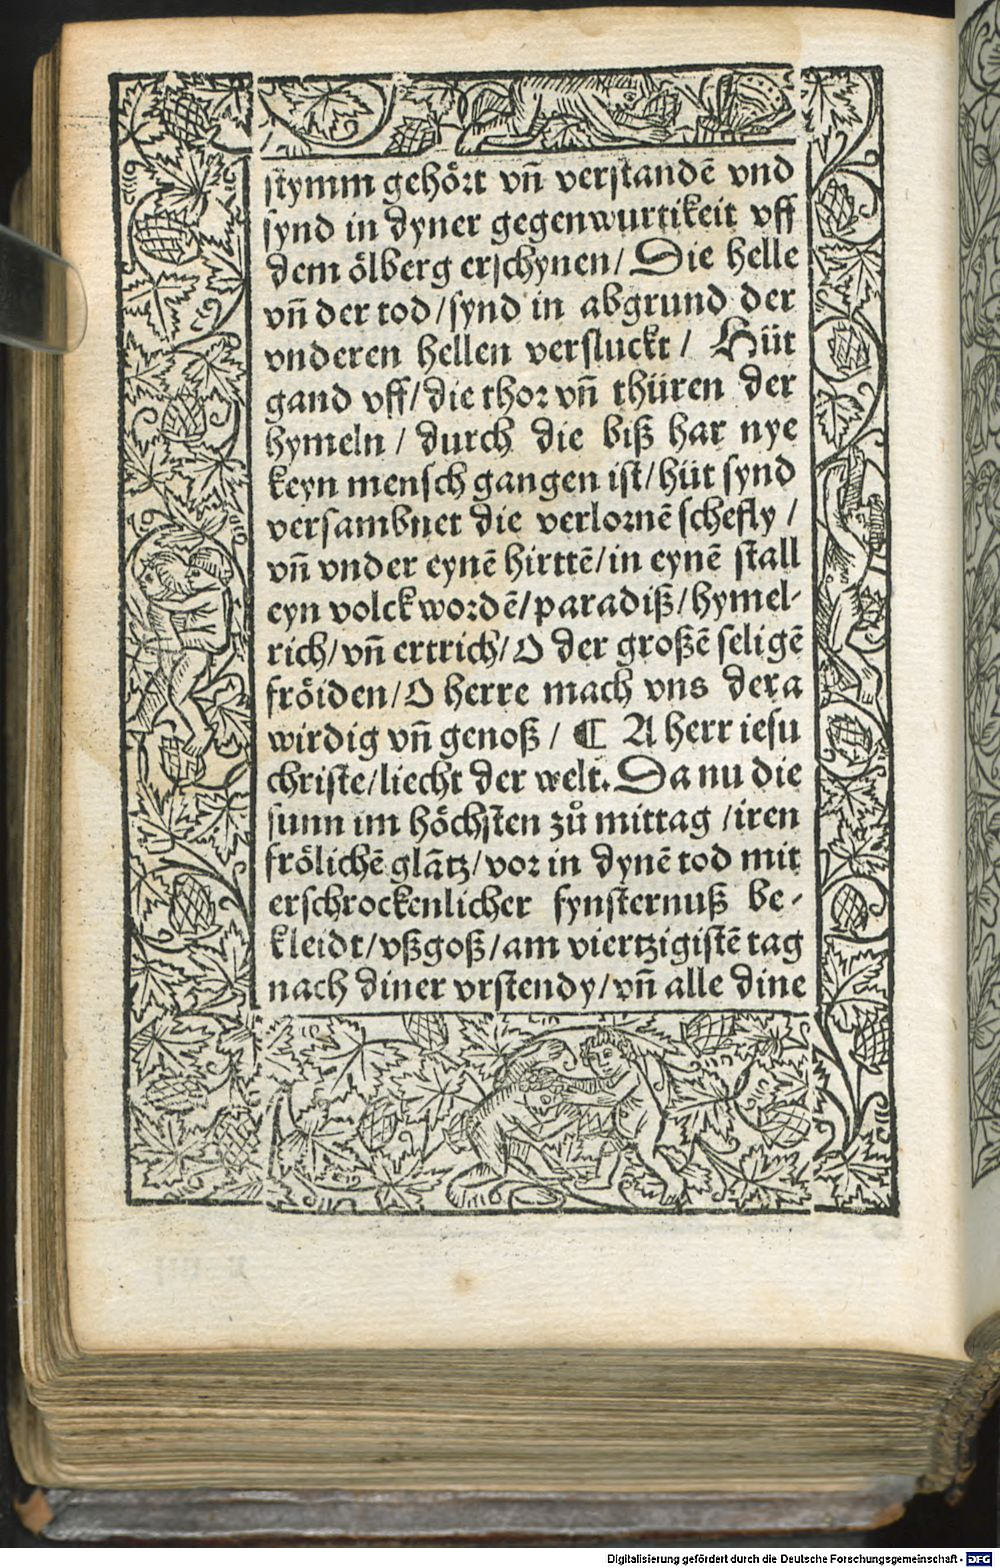 stymm gehört vñ verstandē vnd
synd in dyner gegenwurtikeit vff
dem ölberg erschynen/ Die helle
vñ der tod/synd in abgrund der
vnderen hellen versluckt/ Hüt
gand vff/die thor vñ thüren der
hymeln/ durch die biß har nye
keyn mensch gangen ist/hüt synd
versambnet die verlornē schefly/
vñ vnder eynē hirttē/in eynē stall
eyn volck wordē/paradiß/hymel-
rich/vñ ertrich/O der großē seligē
fröiden/O herre mach vns dera
wirdig vñ genoß/ ¶ A herr iesu
christe/liecht der welt. Da nu die
sunn im höchsten zů mittag/iren
frölichē glātz/vor in dynē tod mit
erschrockenlicher fynsternuß be-
kleidt/vßgoß/am viertzigistē tag
nach diner vrstendy/vñ alle dine
Digitalisierung gefördert durch die Deutsche Forschungsgemeinschaft - DFG